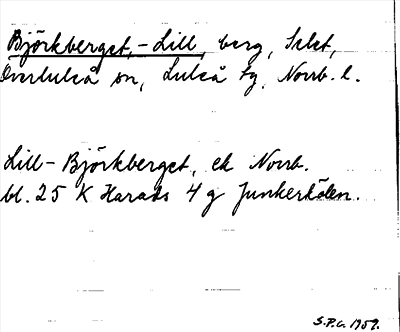 Björkberget, - Lill, berg, Selet,
Överluleå sn, Luleå tg, Norrb. l.
Lill-Björkberget, ek Norrb.
bl. 25 K Harads 4 g Junkerkölen.
S.P.G. 1959.